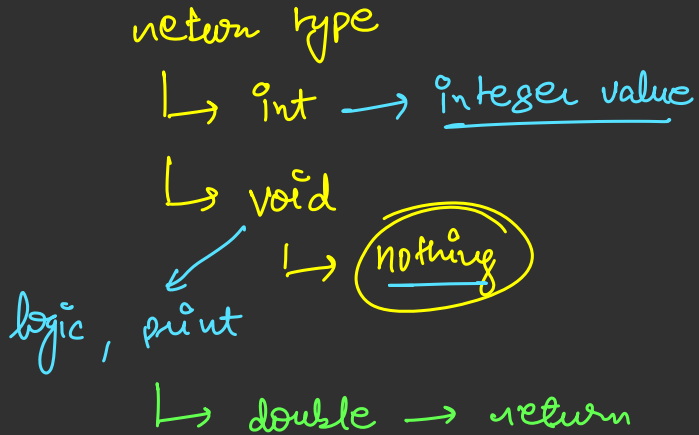 return type
↳ int → integer value
↳ void
↳ nothing
logic, print
↳ double → return